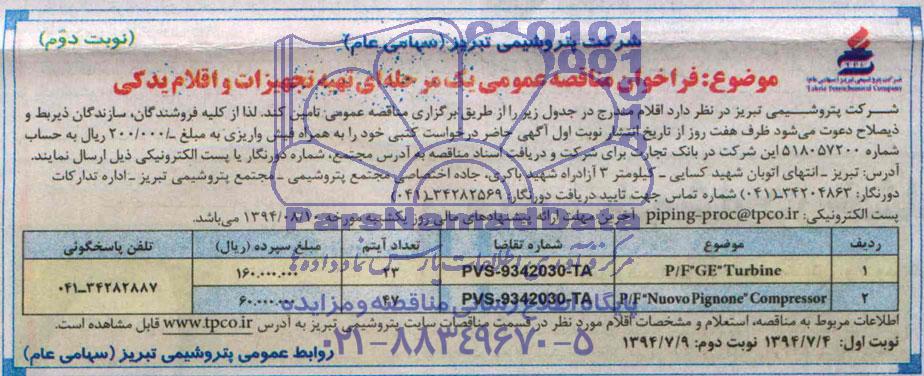 شرکت پتروشیمی تبریز (سهامی عام)
(نوبت دوّم)
شرکت پتروشیمی تبریز (سهامی عام)
Tabriz Petrochemical Company
موضوع: فراخوان مناقصه عمومی یک مرحله ای تهیه تجهیزات و اقلام یدکی
شرکت پتروشیمی تبریز در نظر دارد اقلام مندرج در جدول زیر را از طریق برگزاری مناقصه عمومی تامین کند. لذا از کلیه فروشندگان، سازندگان ذیربط و
ذیصلاح دعوت می‌شود ظرف هفت روز از تاریخ انتشار نوبت اول آگهی حاضر درخواست کتبی خود را به همراه فیش واریزی به مبلغ ـ/۲۰۰/۰۰۰ ریال به حساب
شماره ۵۱۸۰۵۷۲۰۰ این شرکت در بانک تجارت برای شرکت و دریافت اسناد مناقصه به آدرس مجتمع، شماره دورنگار یا پست الکترونیکی ذیل ارسال نمایند.
آدرس: تبریز ـ انتهای اتوبان شهید کسایی ـ کیلومتر ۳ آزادراه شهید باکری، جاده اختصاصی مجتمع پتروشیمی ـ مجتمع پتروشیمی تبریز ـ اداره تدارکات
دورنگار: ۳۴۲۰۴۸۶۳ـ(۰۴۱) شماره تماس جهت تایید دریافت دورنگار: ۳۴۲۸۲۵۶۹ـ(۰۴۱)
پست الکترونیکی: piping-proc@tpco.ir آخرین مهلت ارائه پیشنهادهای مالی روز یکشنبه مورخه ۱۳۹۴/۰۸/۱۰ می‌باشد.
ردیف موضوع شماره تقاضا تعداد آیتم مبلغ سپرده (ریال) تلفن پاسخگوئی
۱ P/F"GE"Turbine PVS-9342030-TA ۲۳ ۱۶۰.۰۰۰.۰۰۰ ۰۴۱-۳۴۲۸۲۸۸۷
۲ P/F"Nuovo Pignone" Compressor PVS-9342030-TA ۴۷ ۶۰.۰۰۰.۰۰۰
اطلاعات مربوط به مناقصه، استعلام و مشخصات اقلام مورد نظر در قسمت مناقصات سایت پتروشیمی تبریز به آدرس www.tpco.ir قابل مشاهده است.
نوبت اول: ۱۳۹۴/۷/۴ نوبت دوم: ۱۳۹۴/۷/۹
روابط عمومی پتروشیمی تبریز (سهامی عام)
ParsNamadData
مرکز فرآوری اطلاعات پارس نماد داده ها
پایگاه اطلاع رسانی مناقصه و مزایده
۰۲۱-۸۸۳۴۹۶۷۰-۵